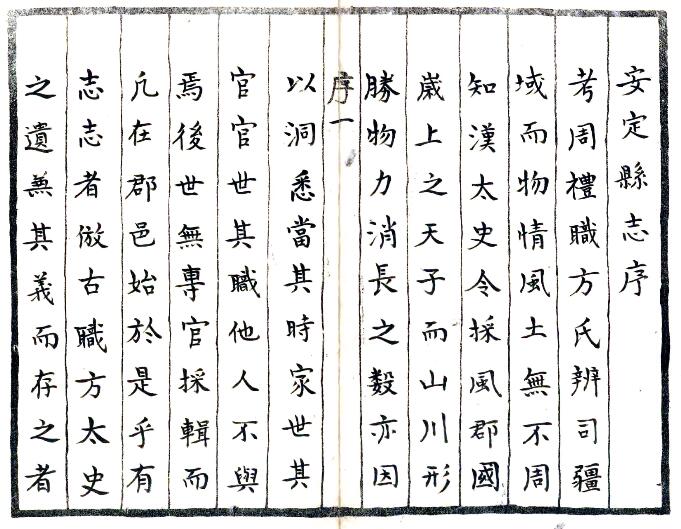 安定縣志序
考周禮職方氏辨司疆
域而物情風土無不周
知漢太史令採風郡國
嵗上之天子而山川形
勝物力消長之數亦因
序一
以洞悉當其時家世其
官官世其職他人不與
焉後世無專官採輯而
凢在郡邑始於是乎有
志志者倣古職方太史
之遺無其義而存之者